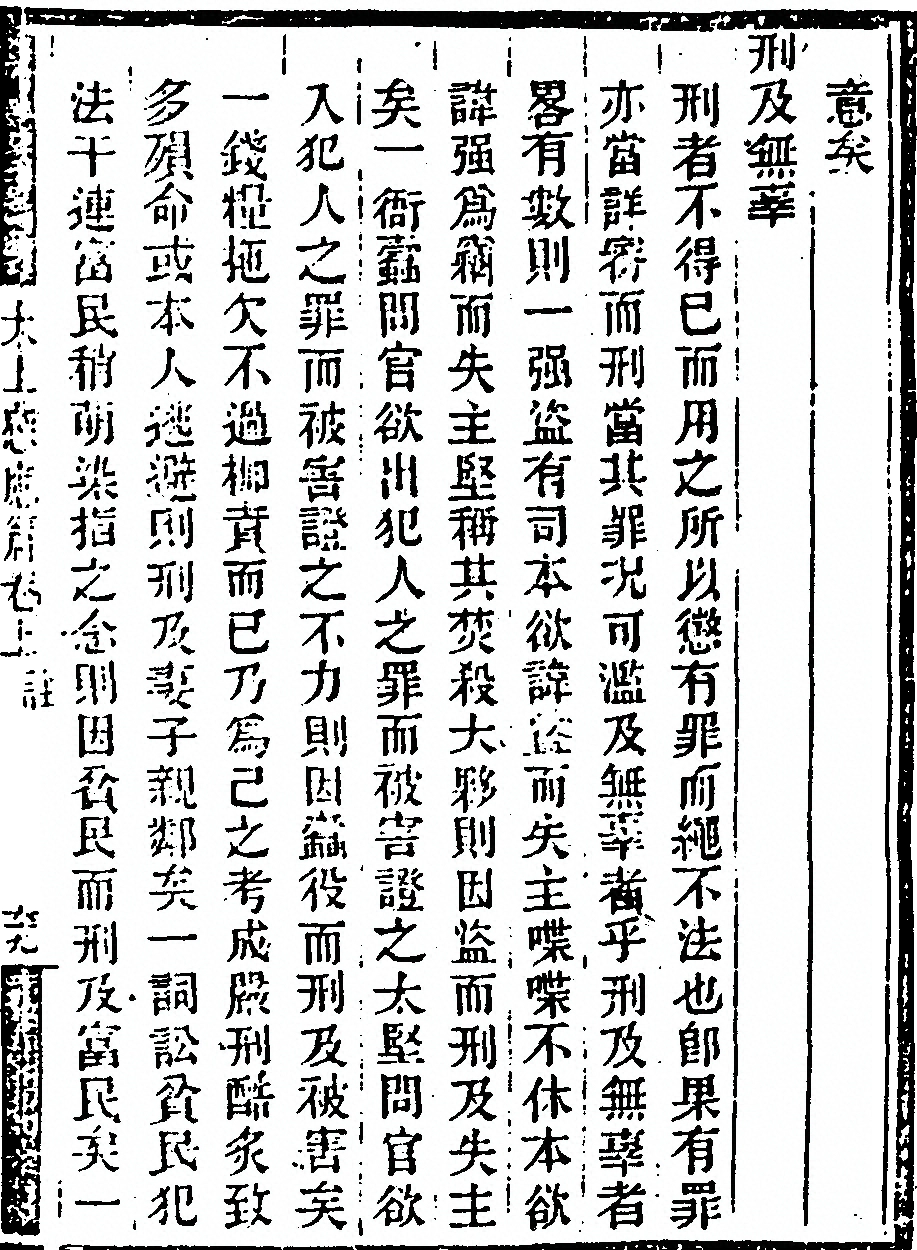 意矣
刑及無辜
刑者不得已而用之所以懲有罪而繩不法也卽果有罪
亦當詳審而刑當其罪况可濫及無辜者乎刑及無辜者
畧有數則一强盜有司本欲諱盜而失主喋喋不休本欲
諱强爲竊而失主堅稱其焚殺大夥則因盜而刑及失主
矣一衙蠹問官欲出犯人之罪而被害證之太堅問官欲
入犯人之罪而被害證之不力則因蠹役而刑及被害矣
一錢糧拖欠不過柳責而已乃爲己之考成嚴刑酷炙致
多殞命或本人逃避則刑及妻子親鄰矣一詞訟貧民犯
法干連富民稍萌染指之念則因貧民而刑及富民矣一
太上感應篇卷上 註